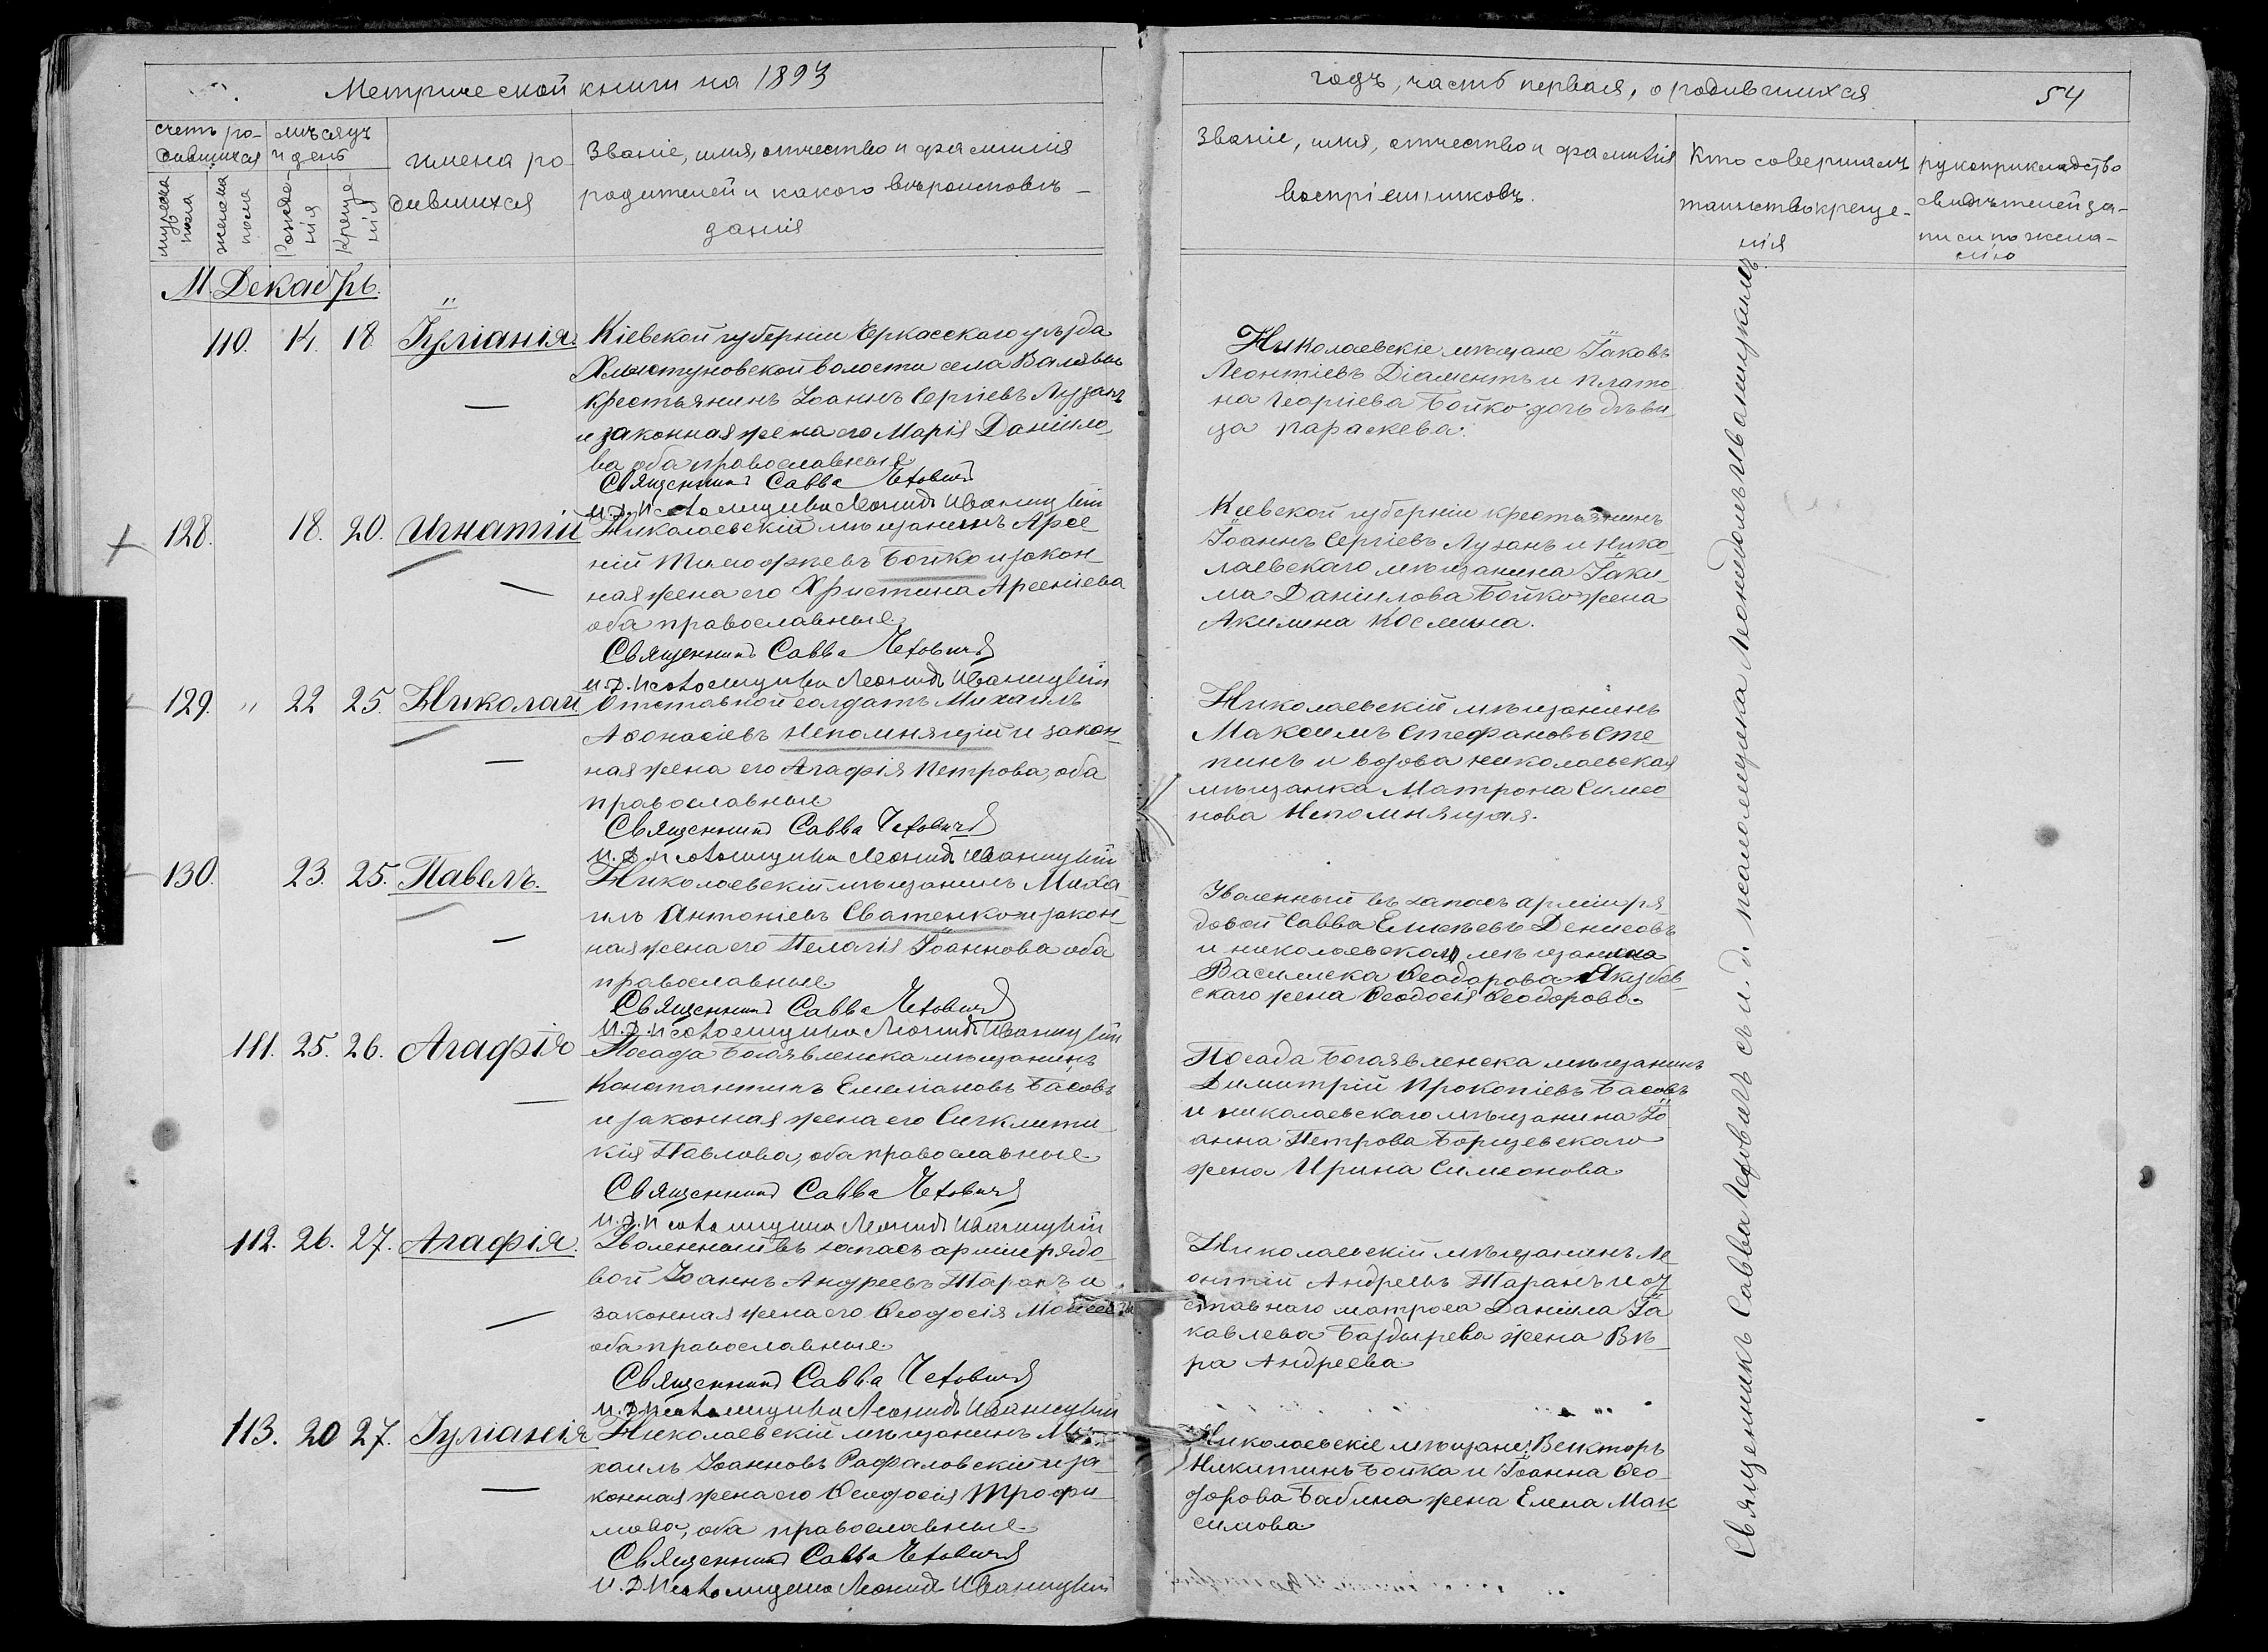 Метрической книги на 1893
годъ, часть первая, о родившихся
54
счетъ ро-
дившихся
мѣсяцъ
и день
мужска
пола
женска
пола
Рожде-
нія
Креще-
нія
имена ро-
дившихся
Званіе, имя, отчество и фамилія
родителей и какого вѣроисповѣ-
данія
Званіе, имя, отчество и фамилія
воспріемниковъ.
Кто совершалъ
таинство креще-
нія
рукоприкладство
свидѣтелей за-
писи по жела-
нію
М. Декабрь.
110. 14. 18 Іуліанія.
Кіевской губерніи Черкасскаго уѣзда
Хлыстуновской волости села Валявы
крестьянинъ Іоаннъ Сергіевъ Лузанъ
и законная жена его Марія Даніило-
ва оба православные
Священникъ Савва Четовичъ
и. д. псаломщика Леонидъ Иваницкій
Николаевскіе мѣщане Іаковъ
Леонтіевъ Діаментъ и Плато-
на Георгіева Бойко дочь дѣви-
ца Параскева.
128. 18. 20. Игнатій
Николаевскій мѣщанинъ Арсе-
ній Тимофеевъ Бойко и закон-
ная жена его Христина Арсеніева
оба православные.
Священникъ Савва Четовичъ
и. д. псаломщика Леонидъ Иваницкій
Кіевской губерніи крестьянинъ
Іоаннъ Сергіевъ Лузанъ и Нико-
лаевскаго мѣщанина Іаки-
ма Даніилова Бойко жена
Акилина Косьмина.
129. " 22 25. Николай
Отставной солдатъ Михаилъ
Аѳонасіевъ Непомнящій и закон-
ная жена его Агафія Петрова, оба
православные
Священникъ Савва Четовичъ
и. д. псаломщика Леонидъ Иваницкій
Николаевскій мѣщанинъ
Максимъ Стефановъ Сте-
пинъ и вдова николаевская
мѣщанка Матрона Симео-
нова Непомнящая.
130. 23. 25. Павелъ.
Николаевскій мѣщанинъ Миха-
илъ Антоніевъ Сватенко и закон-
ная жена его Пелагія Іоаннова оба
православные
Священникъ Савва Четовичъ
и. д. псаломщика Леонидъ Иваницкій
Уволенный въ запасъ арміи ря-
довой Савва Елисѣевъ Денисовъ
и николаевскаго мѣщанина
Василиска Ѳеодорова Якубов-
скаго жена Ѳеодосія Ѳеодорова.
111. 25. 26. Агафія
Посада Богоявленска мѣщанинъ
Константинъ Емеліановъ Басовъ
и законная жена его Сигклити-
кія Павлова, оба православные
Священникъ Савва Четовичъ
и. д. псаломщика Леонидъ Иваницкій
Посада Богоявленска мѣщанинъ
Димитрій Прокопіевъ Басовъ
и николаевскаго мѣщанина Іо-
анна Петрова Борщевскаго
жена Ирина Симеонова
112. 26. 27. Агафія.
Уволенный въ запасъ арміи рядо-
вой Іоаннъ Андреевъ Таранъ и
законная жена его Ѳеодосія Моисеева
оба православные
Священникъ Савва Четовичъ
и. д. псаломщика Леонидъ Иваницкій
Николаевскій мѣщанинъ Ле-
онтій Андреевъ Таранъ и от-
ставного матроса Даніила Іа-
кавлева Баздырева жена Вѣ-
ра Андреева
113. 20 27. Іуліанія
Николаевскій мѣщанинъ Ми-
хаилъ Іоанновъ Рафаловскій и за-
конная жена его Ѳеодосія Трофи-
мова, оба православные
Священникъ Савва Четовичъ
и. д. псаломщика Леонидъ Иваницкій
Николаевскіе мѣщане: Викторъ
Никитинъ Бойко и Іоанна Ѳео-
дорова Бабина жена Елена Мак-
симова
Священникъ Савва Четовичъ съ и. д. псаломщика Леонидомъ Иваницкимъ